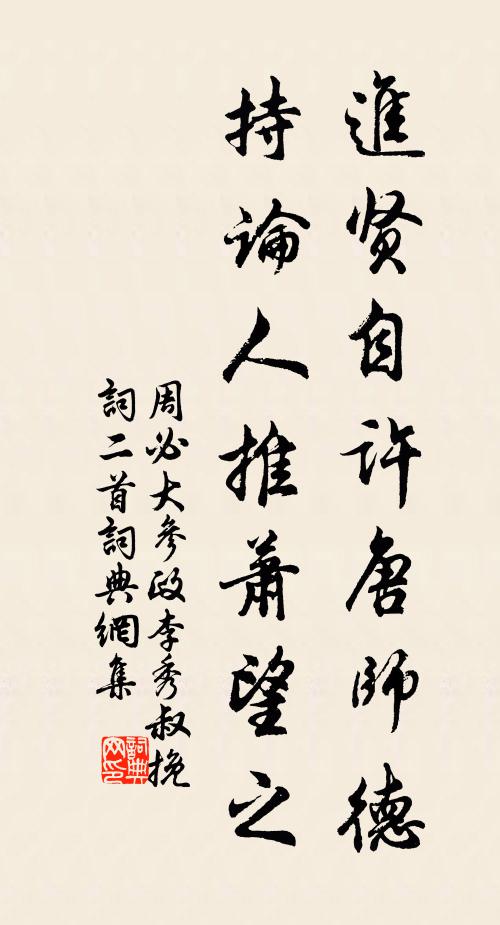 進賢自許唐師德
持論人推蕭望之
周必大參政李秀叔挽
詞二首詞典網集
詞典
网印